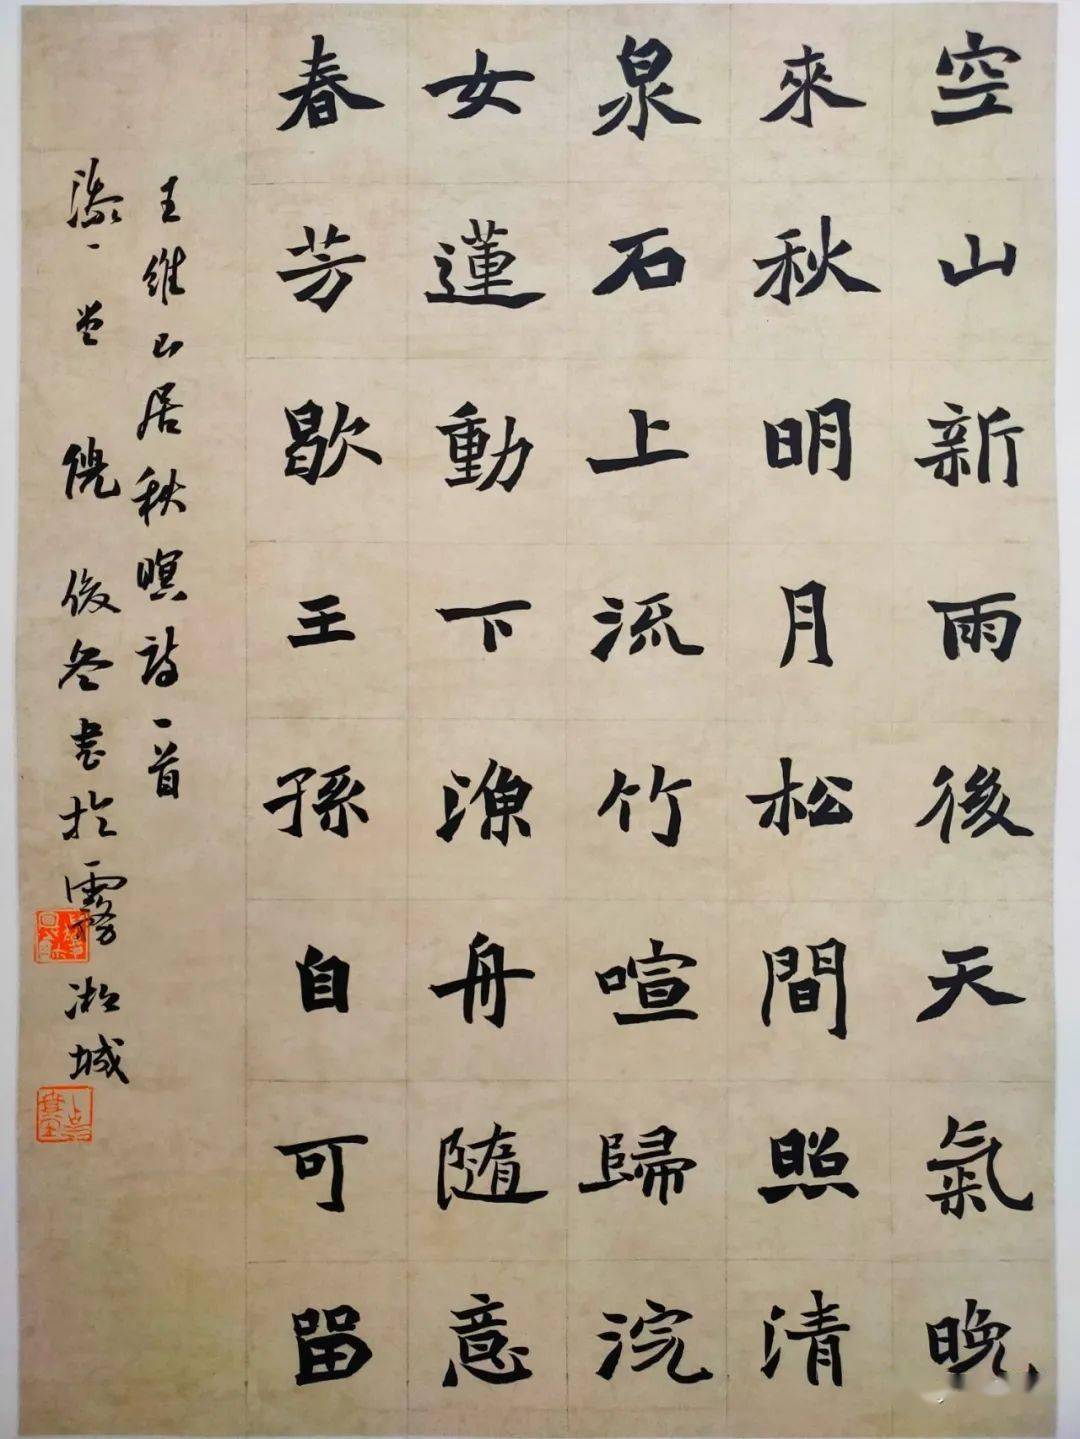 空山新雨後天氣晚
來秋明月松間照清
泉石上流竹喧歸浣
女蓮動下漁舟隨意
春芳歇王孫自可留
王維山居秋暝詩一首
一堂 倪俊 書於霧凇城